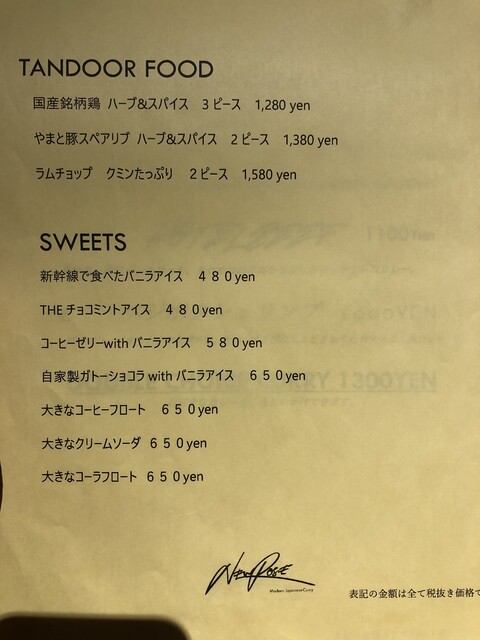 TANDOOR FOOD
国産銘柄鶏 ハーブ&スパイス 3ピース 1,280 yen
やまと豚スペアリブ ハーブ&スパイス 2ピース 1,380 yen
ラムチョップ クミンたっぷり 2ピース 1,580 yen
SWEETS
新幹線で食べたバニラアイス 480yen
THE チョコミントアイス 480yen
コーヒーゼリーwith バニラアイス 580yen
自家製ガトーショコラ with バニラアイス 650yen
大きなコーヒーフロート 650yen
大きなクリームソーダ 650yen
大きなコーラフロート 650yen
New Rose
Modern Japanese Curry
表記の金額は全て税抜き価格で